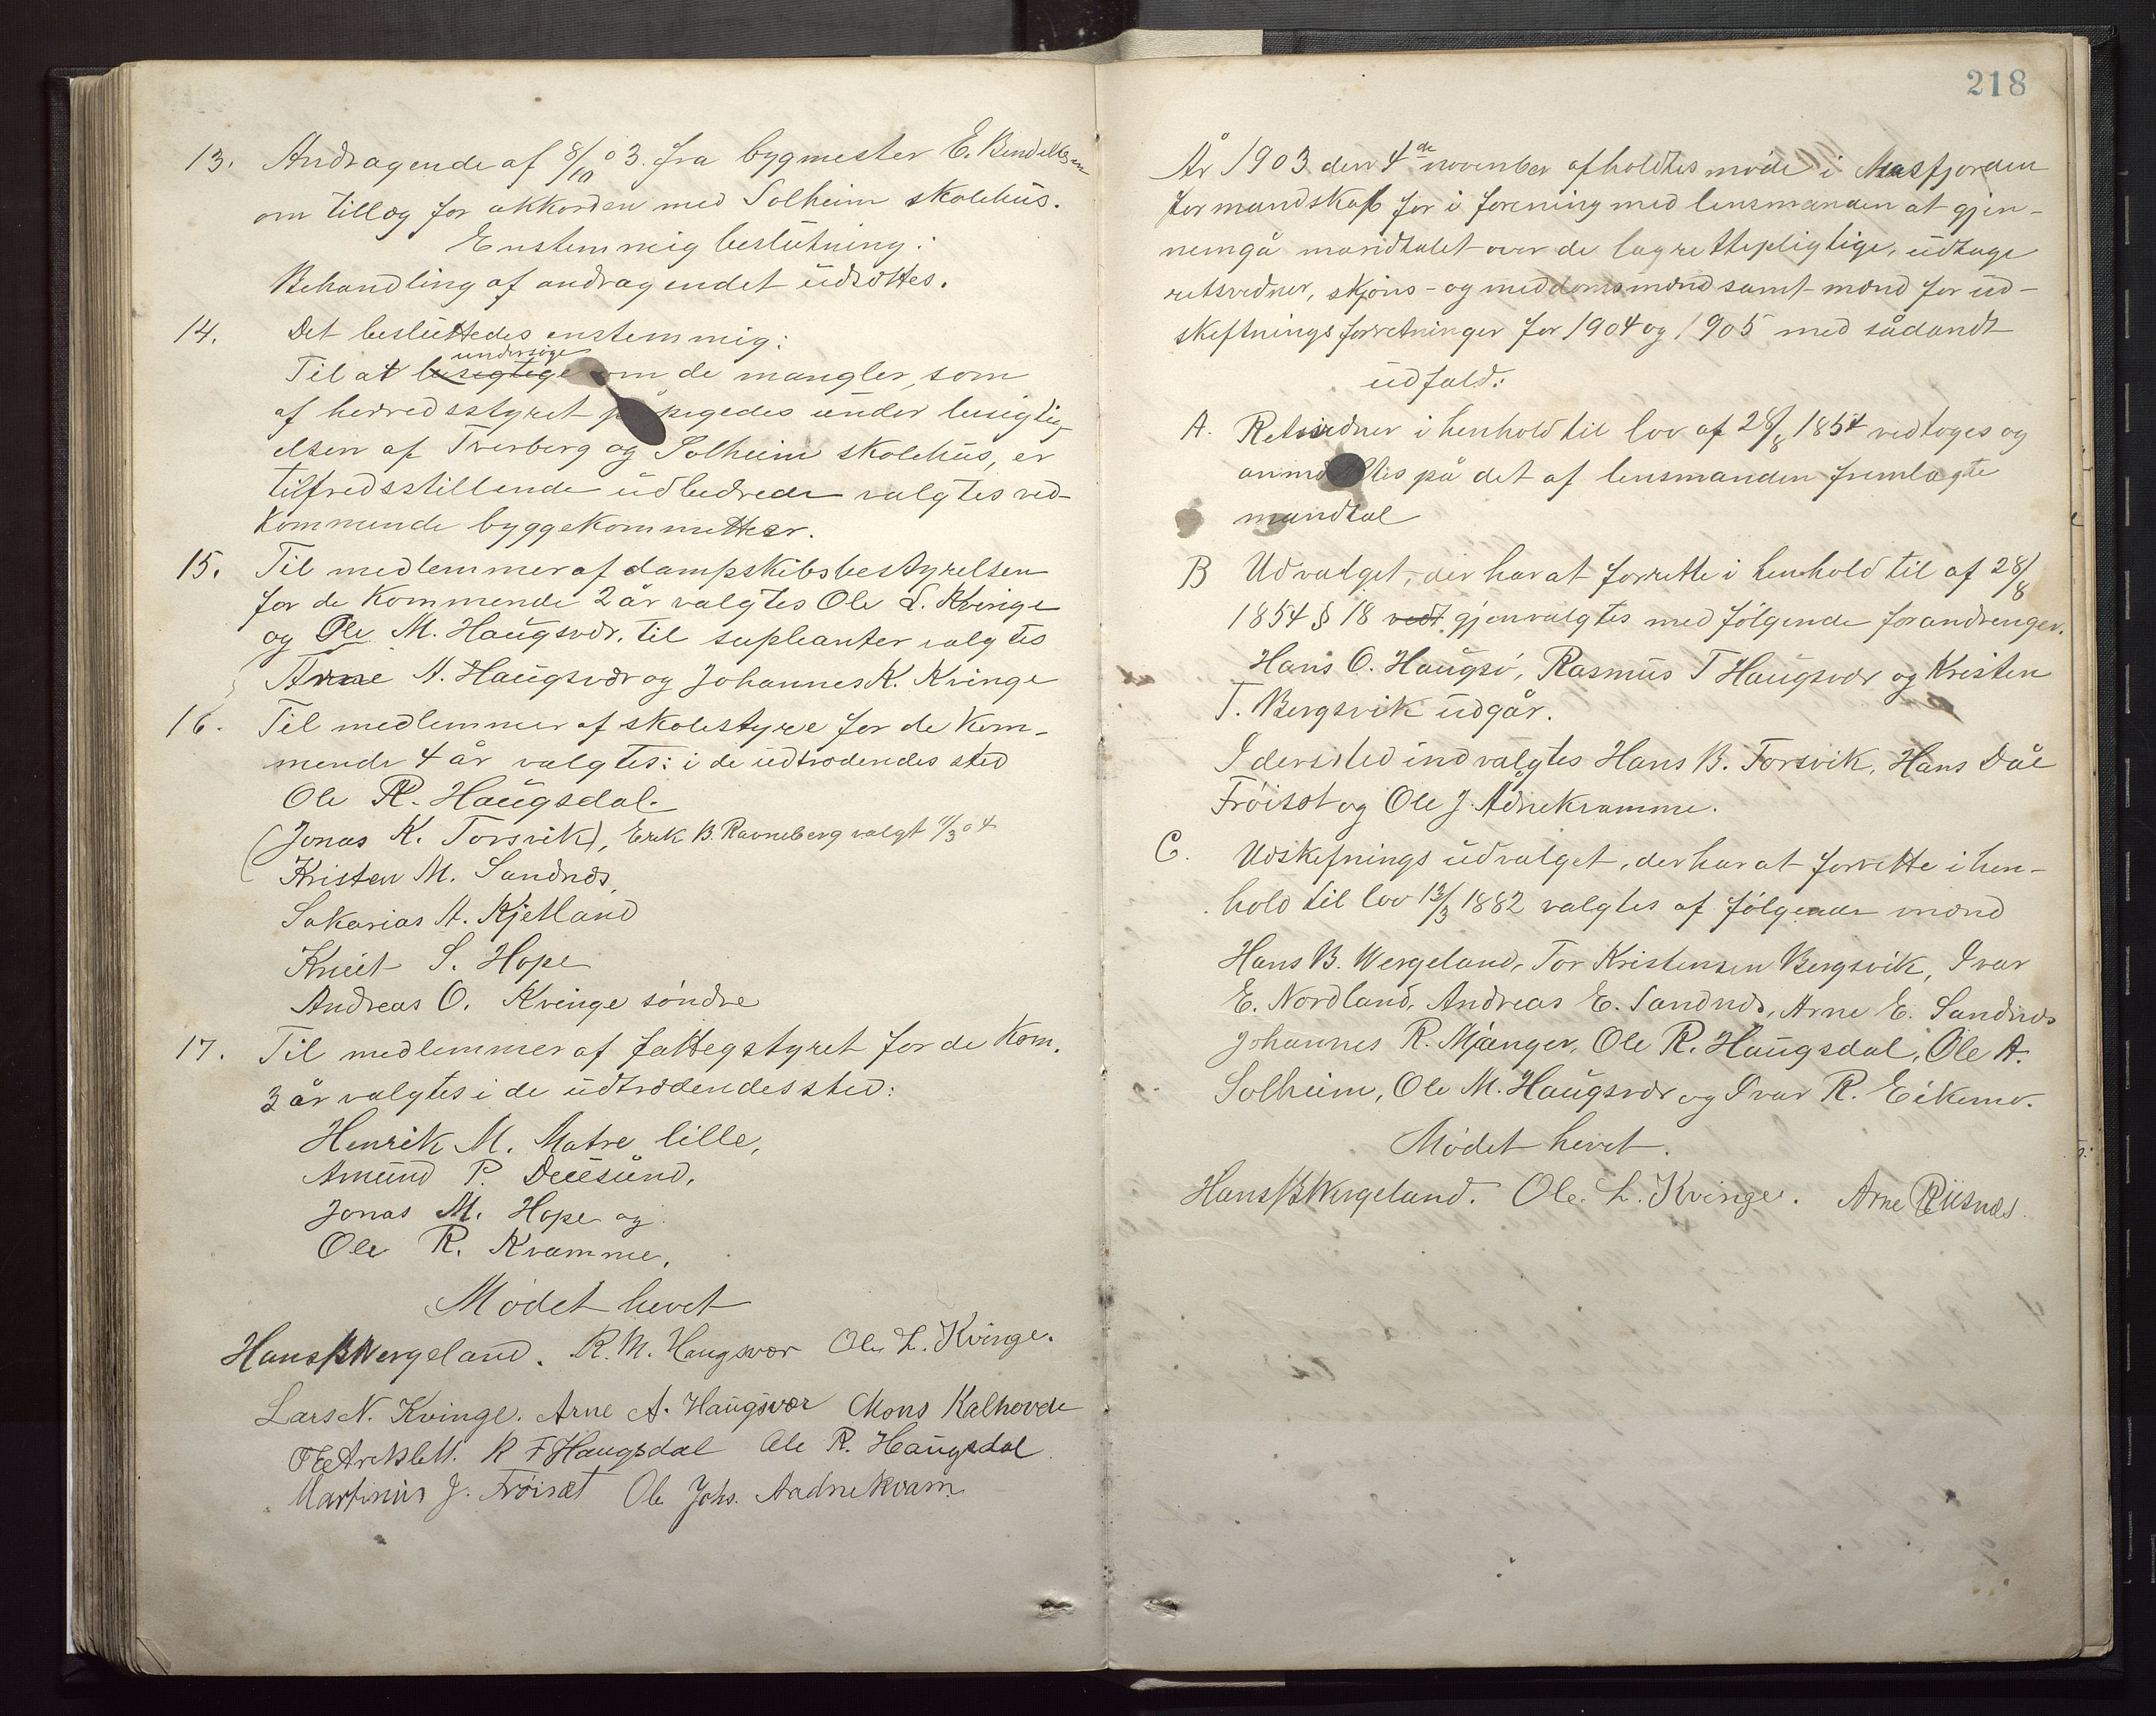 13. Andragende af 8/10 03. fra bygmester E. Bendiktsen
om tillæg for akkorden med Solheim skolehus.
Enstemmig beslutning:
Behandling af andragendet udsættes.
14. Det besluttedes enstemmig:
undersøge
Til at besigtige om de mangler, som
af herredsstyret påpegedes under besigtig-
elsen af Tverberg og Solheim skolehus, er
tilfredsstillende udbedrede valgtes ved-
kommende byggekommitteer.
15. Til medlemmer af dampskibsbestyrelsen
for de kommende 2 år valgtes Ole L. Kvinge
og Ole M. Haugsvær. til supleanter valgtes
Arne A. Haugsvær og Johannes K. Kvinge
16. Til medlemmer af skolestyre for de kom-
mende 4 år valgtes: i de udtrædendes sted
Ole R. Haugsdal.
(Jonas K. Torsvik), Erik B. Ravneberg valgt 11/3 04
Kristen M. Sandnæs,
Sakarias A. Kjetland
Knut S. Hope
Andreas O. Kvinge søndre
17. Til medlemmer af fattegstyret for de kom.
3 år valgtes i de udtrædendes sted:
Henrik M. Matre lille,
Amund P. Duesund,
Jonas M. Hope og
Ole R. Kvamme.
Mødet hevet
Hans B Wergeland. R. M. Haugsvær Ole L. Kvinge.
Lars N. Kvinge. Arne A. Haugsvær Mons Kalhovde
R F Haugsdal Ole R. Haugsdal
Martinus J. Frøiset Ole Johs. Aadnekvam
218
År 1903 den 4de november afholdtes møde i Masfjorden
formandskab for i forening med lensmanden at gjen-
nemgå mandtalet over de lagrettepligtige, udtage
retsvidner, skjøns- og meddomsmænd samt mænd for ud-
skiftningsforretninger for 1904 og 1905 med sådandt
udfald:
A. Retsvidner i henhold til lov af 28/8 1854 vedtoges og
anmeldtes på det af lensmanden fremlagte
mandtal
B Udvalget, der har at forrette i henhold til af 28/8
1854 § 18 vedt gjenvalgtes med følgende forandrenger.
Hans O. Haugsø, Rasmus T Haugsvær og Kristen
T. Bergsvik udgår.
I dersted indvalgtes Hans B. Torsvik, Hans Dåe
Frøisæt og Ole J. Ådnekvamme.
C. Udskifnings udvalget, der har at forrette i hen-
hold til lov 13/3 1882 valgtes af følgende mænd
Hans B. Wergeland, Tor Kristensen Bergsvik, Ivar
E. Nordland, Andreas E. Sandnæs, Arne E. Sandnæs
Johannes R. Mjanger, Ole R. Haugsdal, Ole A.
Solheim, Ole M. Haugsvær og Ivar R. Eikemo.
Mødet hevet.
Hans B Wergeland. Ole L. Kvinge. Arne Riisnæs.